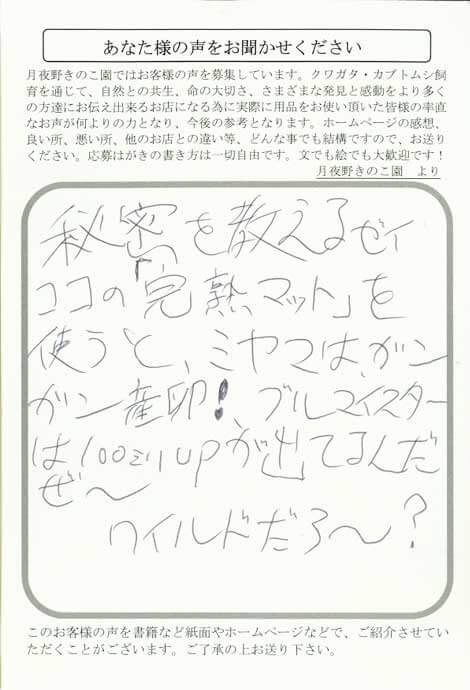 あなた様の声をお聞かせください
月夜野きのこ園ではお客様の声を募集しています。クワガタ・カブトムシ飼
育を通じて、自然との共生、命の大切さ、さまざまな発見と感動をより多く
の方達にお伝え出来るお店になる為に実際に用品をお使い頂いた皆様の率直
なお声が何よりの力となり、今後の参考となります。ホームページの感想、
良い所、悪い所、他のお店との違い等、どんな事でも結構ですので、お送り
ください。応募はがきの書き方は一切自由です。文でも絵でも大歓迎です！
月夜野きのこ園　より
秘密を教えるゼイ
ココの「完熟マット」を
使うと、ミヤマは、ガン
ガン産卵！、ブルマイスター
は100ミリupが出てるんだ
ぜ〜
ワイルドだろ〜？
このお客様の声を書籍など紙面やホームページなどで、ご紹介させてい
ただくことがございます。ご了承の上お送り下さい。